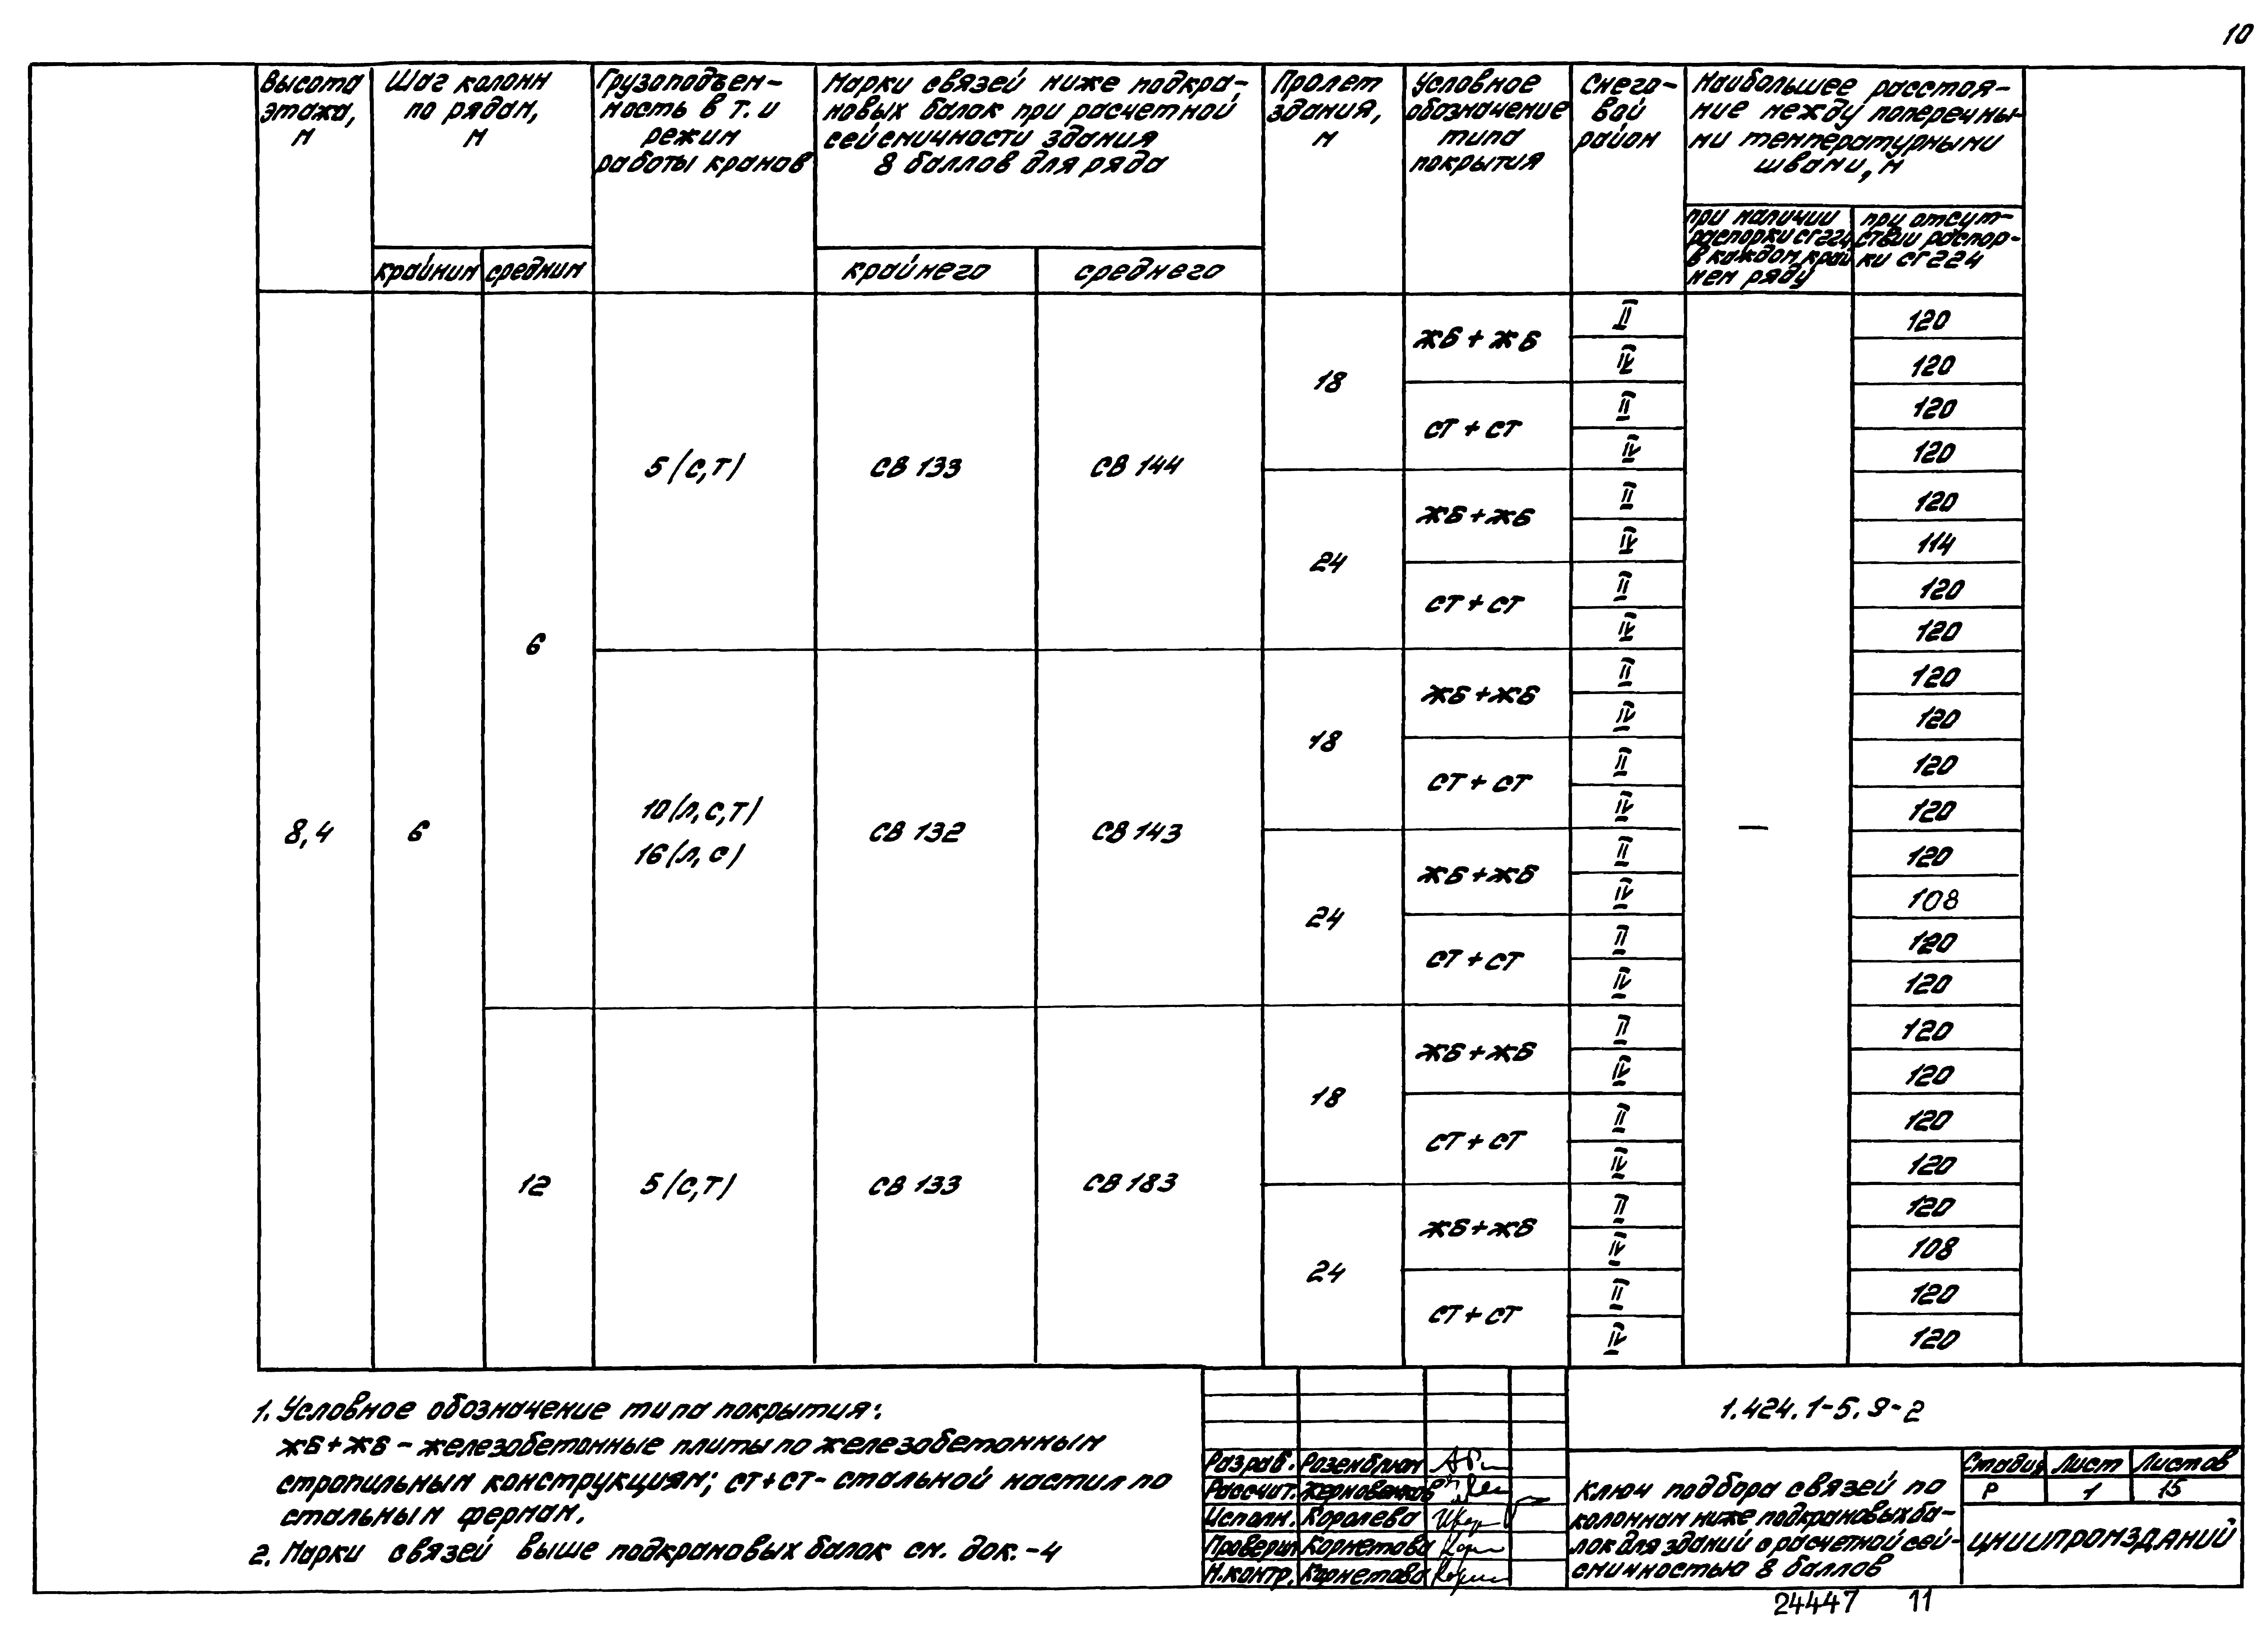 10
Высота этажа, м
Шаг колонн по рядам, м
крайним
средним
Грузоподъем-
ность в т. и
режим
работы кранов
Марки связей ниже подкра-
новых балок при расчетной
сейсмичности здания
8 баллов для ряда
крайнего
среднего
Пролет
здания,
м
Условное
обозначение
типа
покрытия
Снего-
вой
район
Наибольшее расстоя-
ние между поперечны-
ми температурными
швами, м
при наличии
распорки СГ224
в каждом край
нем ряду
при отсут-
ствии распор-
ки СГ224
8,4
6
6
5 (С,Т)
СВ 133
СВ 144
18
ЖБ + ЖБ
II 120
IV 120
СТ + СТ
II 120
IV 120
24
ЖБ + ЖБ
II 120
IV 114
СТ + СТ
II 120
IV 120
10 (Л,С,Т)
16 (Л,С)
СВ 132
СВ 143
—
18
ЖБ + ЖБ
II 120
IV 120
СТ + СТ
II 120
IV 120
24
ЖБ + ЖБ
II 120
IV 108
СТ + СТ
II 120
IV 120
12
5 (С,Т)
СВ 133
СВ 183
18
ЖБ + ЖБ
II 120
IV 120
СТ + СТ
II 120
IV 120
24
ЖБ + ЖБ
II 120
IV 108
СТ + СТ
II 120
IV 120
1. Условное обозначение типа покрытия:
ЖБ + ЖБ - железобетонные плиты по железобетонным
стропильным конструкциям; СТ+СТ - стальной настил по
стальным фермам.
2. Марки связей выше подкрановых балок см. док. -4
Разраб. Розенблюм
Рассчит. Жерновенков
Исполн. Королева
Проверил Корнетова
Н.контр. Корнетова
1.424.1-5.9-2
Ключ подбора связей по
колоннам ниже подкрановых ба-
лок для зданий с расчетной сей-
смичностью 8 баллов
Стадия Лист Листов
Р 1 15
ЦНИИПРОМЗДАНИЙ
24447 11